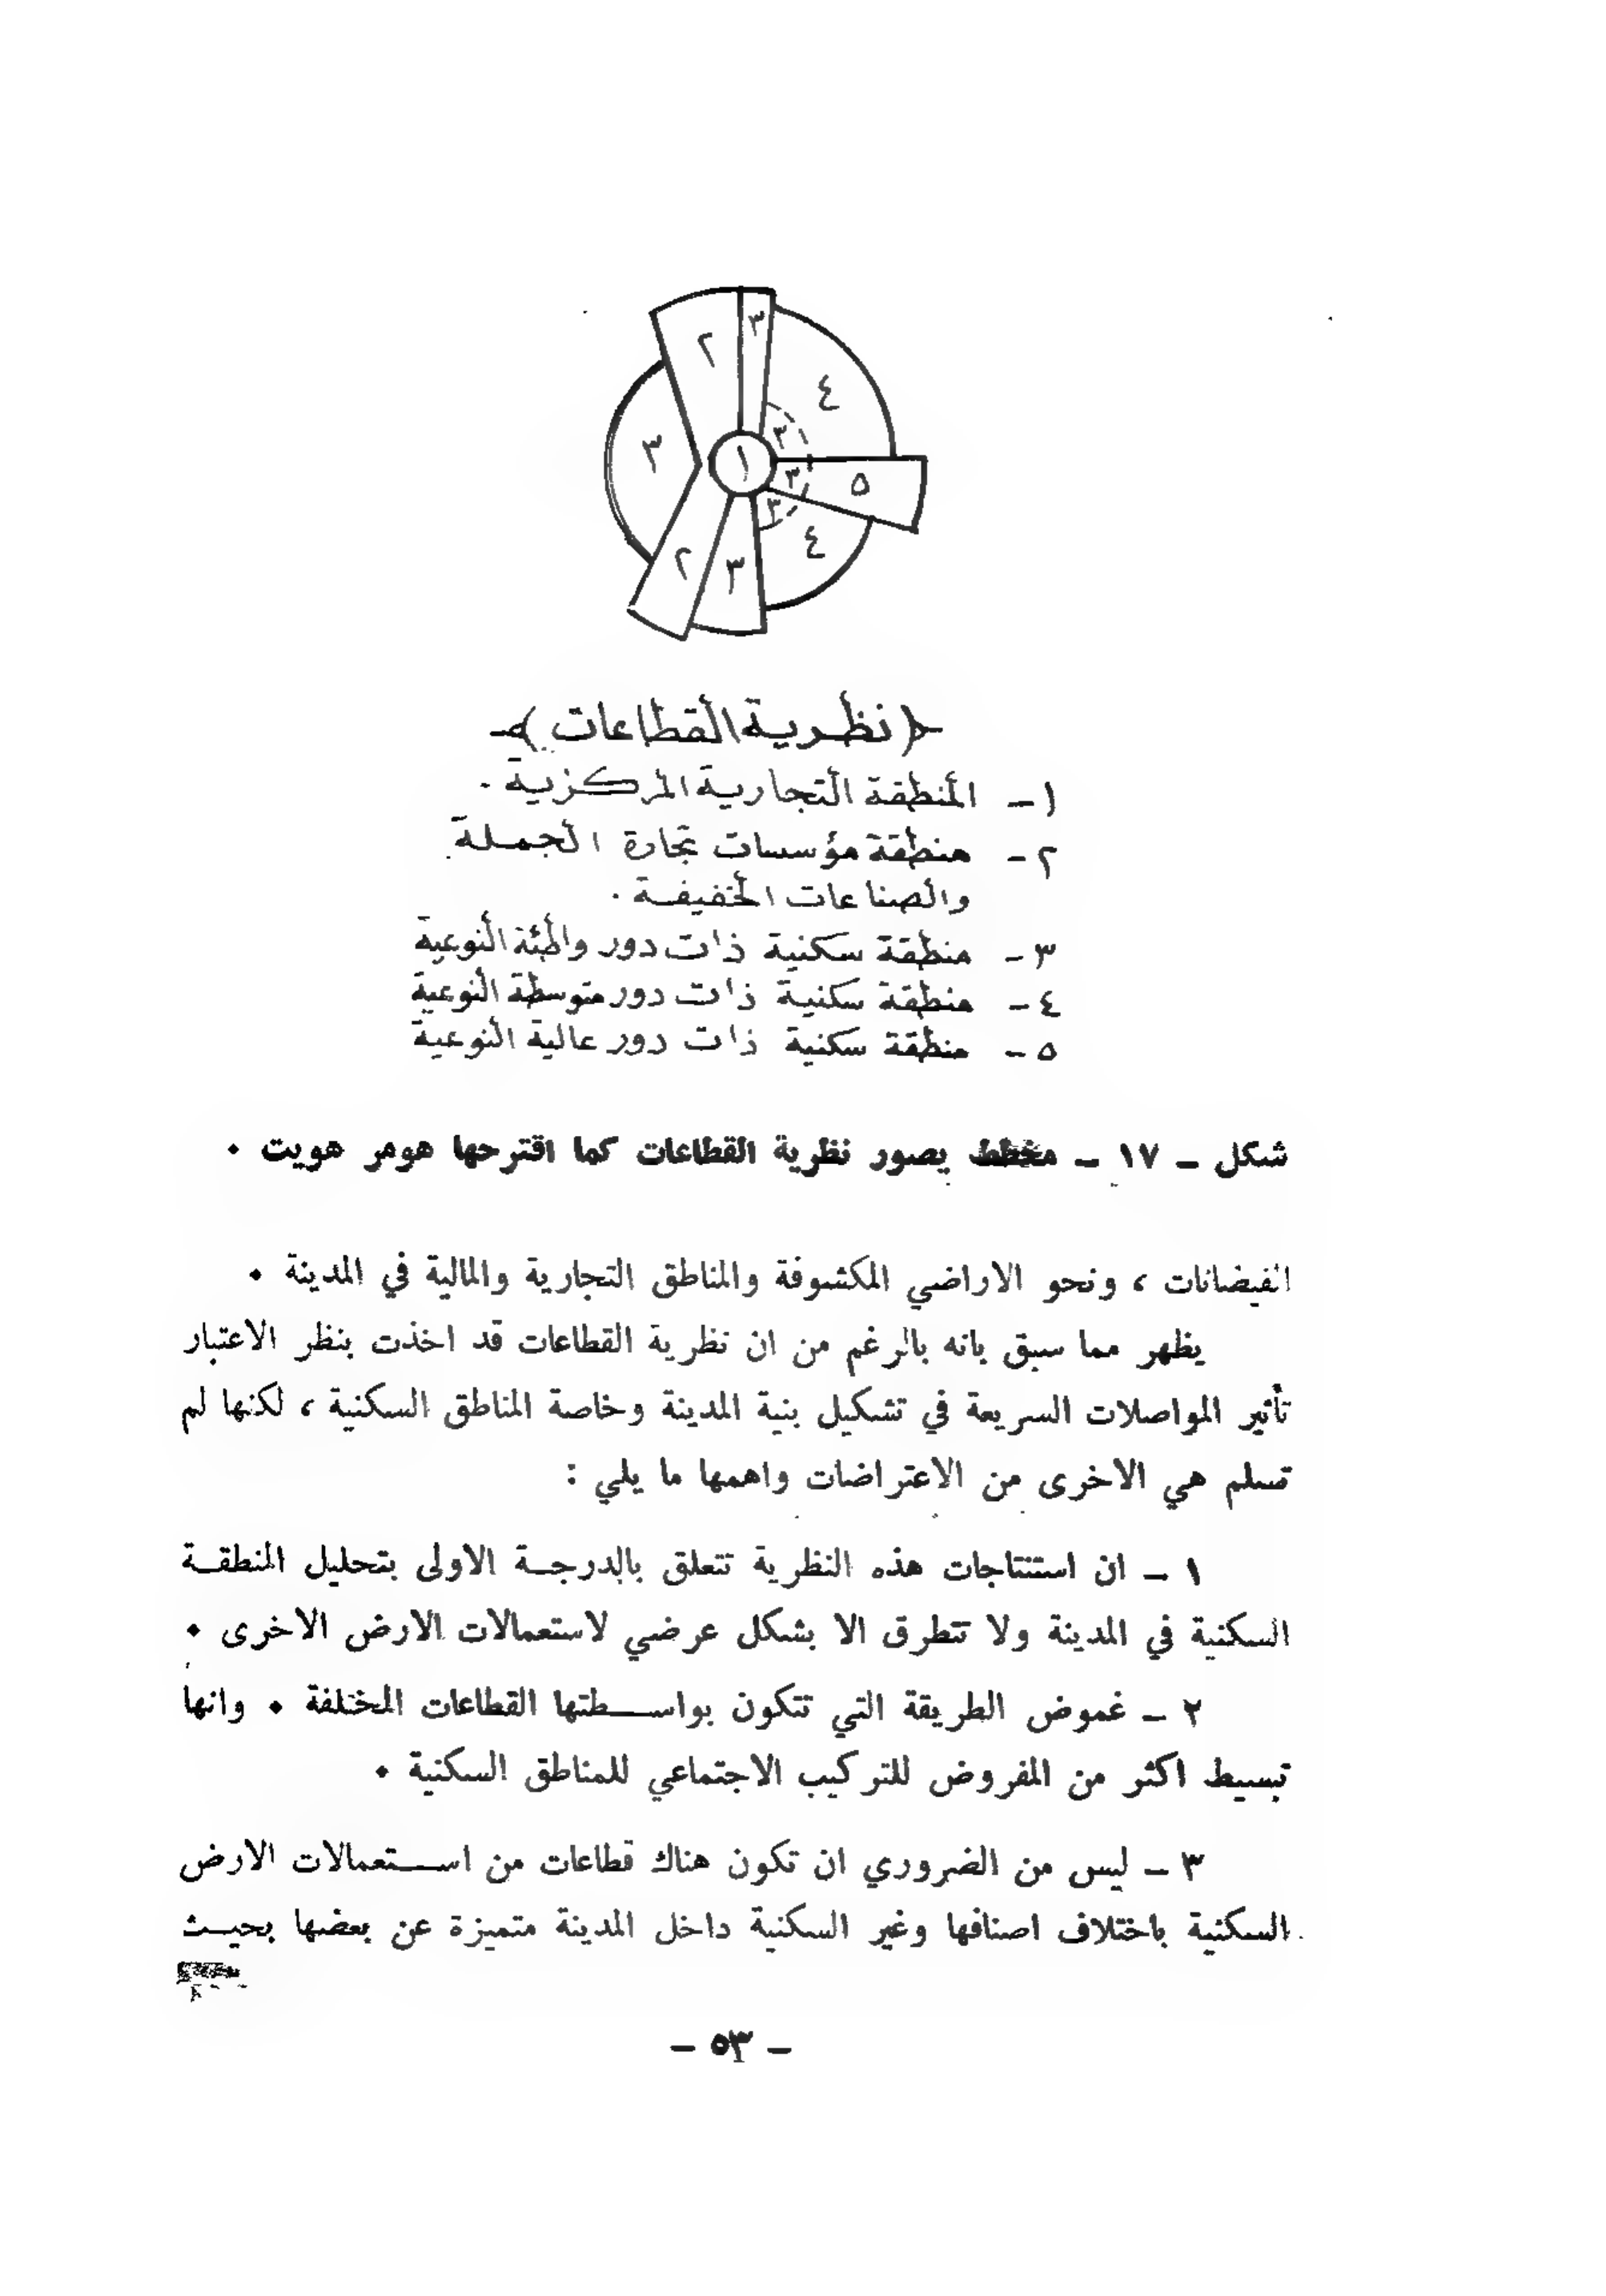 ٣
٢
٤
٣
٣
١
٣
٥
٣
٤
٢
٣
﴿نظرية القطاعات﴾
١- المنطقة التجارية المركزية .
٢- منطقة مؤسسات تجارة الجملة
والصناعات الخفيفة .
٣- منطقة سكنية ذات دور واطئة النوعية
٤- منطقة سكنية ذات دور متوسطة النوعية
٥- منطقة سكنية ذات دور عالية النوعية
شكل ـ ١٧ ـ مخطط يصور نظرية القطاعات كما اقترحها هومر هويت ٠
الفيضانات ، ونحو الاراضي المكشوفة والمناطق التجارية والمالية في المدينة ٠
يظهر مما سبق بانه بالرغم من ان نظرية القطاعات قد اخذت بنظر الاعتبار
تأثير المواصلات السريعة في تشكيل بنية المدينة وخاصة المناطق السكنية ، لكنها لم
تسلم هي الاخرى من الاعتراضات واهمها ما يلي :
١ ـ ان استنتاجات هذه النظرية تتعلق بالدرجـة الاولى بتحليل المنطقـة
السكنية في المدينة ولا تتطرق الا بشكل عرضي لاستعمالات الارض الاخرى ٠
٢ ـ غموض الطريقة التي تتكون بواســطتها القطاعات المختلفة ٠ وانها
تبسيط اكثر من المفروض للتركيب الاجتماعي للمناطق السكنية ٠
٣ ـ ليس من الضروري ان تكون هناك قطاعات من اســتعمالات الارض
السكنية باختلاف اصنافها وغير السكنية داخل المدينة متميزة عن بعضها بحيـث
ـ ٥٣ ـ